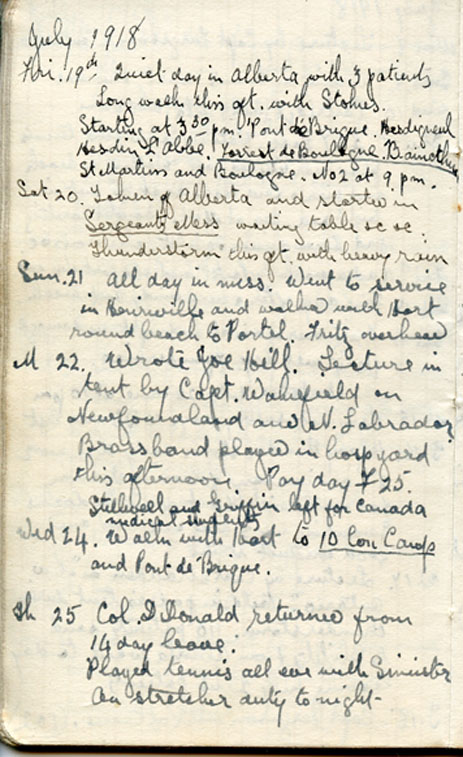 July 1918
Fri. 19th Quiet day in Alberta with 3 patients
Long walk this aft. with Stokes.
Starting at 3 30 p.m. Pont de Brique. Hesdigneul
Hesdin L'Abbe. Forrest de Boulogne. Bainothun
St Martins and Boulogne. No 2 at 9 p.m.
Sat 20. Taken of Alberta and started in
Sergeants Mess waiting table &c &c.
Thunderstorm this aft. with heavy rain
Sun. 21 All day in mess. Went to service
in Henriville and walked with Hart
round beach to Portel. Fritz overhead
M 22. Wrote Joe Hill. Lecture in
tent by Capt. Wakefield on
Newfoundland and N. Labrador
Brass band played in hosp yard
this afternoon. Pay day F 25.
Stillwell and Griffin left for Canada
medical students
Wed 24. Walk with Hart to 10 Con Camp
and Pont de Brique.
Th 25 Col. D Donald returned from
14 day leave.
Played tennis all eve with Sinister
On stretcher duty to night-